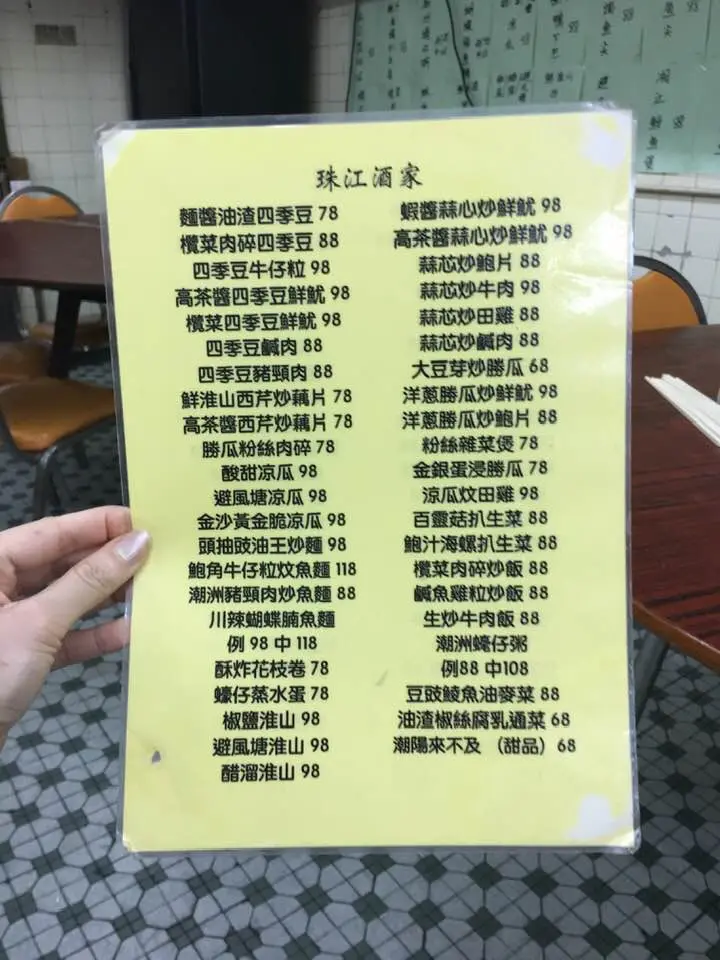 珠江酒家
麵醬油渣四季豆 78
欖菜肉碎四季豆 88
四季豆牛仔粒 98
高茶醬四季豆鮮魷 98
欖菜四季豆鮮魷 98
四季豆鹹肉 88
四季豆豬頸肉 88
鮮淮山西芹炒藕片 78
高茶醬西芹炒藕片 78
勝瓜粉絲肉碎 78
酸甜凉瓜 98
避風塘凉瓜 98
金沙黃金脆凉瓜 98
頭抽豉油王炒麵 98
鮑角牛仔粒炆魚麵 118
潮洲豬頸肉炒魚麵 88
川辣蝴蝶腩魚麵
例 98 中 118
酥炸花枝卷 78
蠔仔蒸水蛋 78
椒鹽淮山 98
避風塘淮山 98
醋溜淮山 98
蝦醬蒜心炒鮮魷 98
高茶醬蒜心炒鮮魷 98
蒜芯炒鮑片 88
蒜芯炒牛肉 98
蒜芯炒田雞 88
蒜芯炒鹹肉 88
大豆芽炒勝瓜 68
洋蔥勝瓜炒鮮魷 98
洋蔥勝瓜炒鮑片 88
粉絲雜菜煲 78
金銀蛋浸勝瓜 78
涼瓜炆田雞 98
百靈菇扒生菜 88
鮑汁海螺扒生菜 88
欖菜肉碎炒飯 88
鹹魚雞粒炒飯 88
生炒牛肉飯 88
潮洲蠔仔粥
例88 中108
豆豉鯪魚油麥菜 88
油渣椒絲腐乳通菜 68
潮陽來不及 （甜品）68